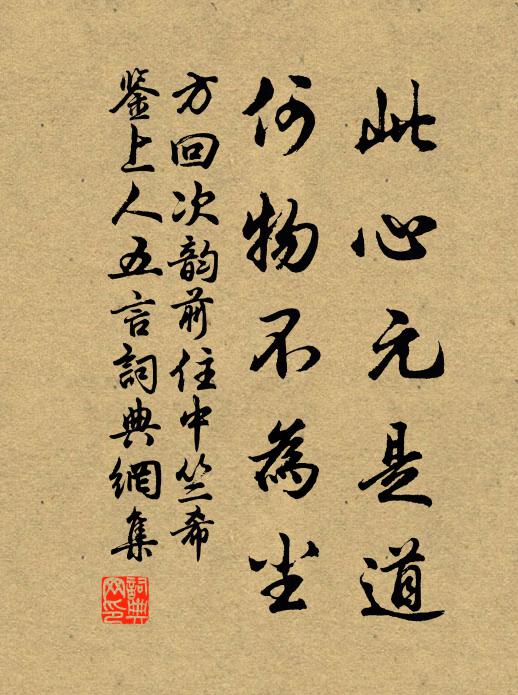 此心元是道
何物不為尘
方回次韵前住中竺希
鉴上人五言詞典網集
詞典
网印